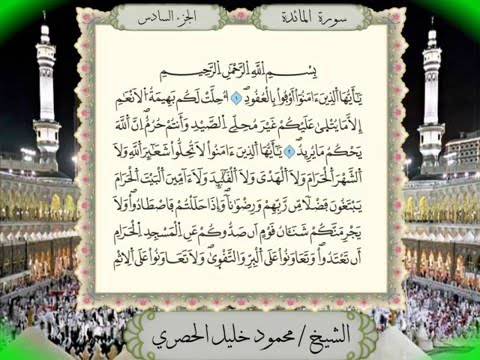 سورة المائدة
الجزء السادس
بِسْمِ اللَّهِ الرَّحْمَٰنِ الرَّحِيمِ
يَا أَيُّهَا الَّذِينَ ءَامَنُوا أَوْفُوا بِالْعُقُودِ ۱ أُحِلَّتْ لَكُم بَهِيمَةُ الْأَنْعَامِ
إِلَّا مَا يُتْلَىٰ عَلَيْكُمْ غَيْرَ مُحِلِّي الصَّيْدِ وَأَنتُمْ حُرُمٌ إِنَّ اللَّهَ
يَحْكُمُ مَا يُرِيدُ ۲ يَا أَيُّهَا الَّذِينَ ءَامَنُوا لَا تُحِلُّوا شَعَائِرَ اللَّهِ وَلَا
الشَّهْرَ الْحَرَامَ وَلَا الْهَدْيَ وَلَا الْقَلَائِدَ وَلَا ءَامِّينَ الْبَيْتَ الْحَرَامَ
يَبْتَغُونَ فَضْلًا مِّن رَّبِّهِمْ وَرِضْوَانًا وَإِذَا حَلَلْتُمْ فَاصْطَادُوا وَلَا
يَجْرِمَنَّكُمْ شَنَآنُ قَوْمٍ أَن صَدُّوكُمْ عَنِ الْمَسْجِدِ الْحَرَامِ
أَن تَعْتَدُوا وَتَعَاوَنُوا عَلَى الْبِرِّ وَالتَّقْوَىٰ وَلَا تَعَاوَنُوا عَلَى الْإِثْمِ
الشيخ / محمود خليل الحصري